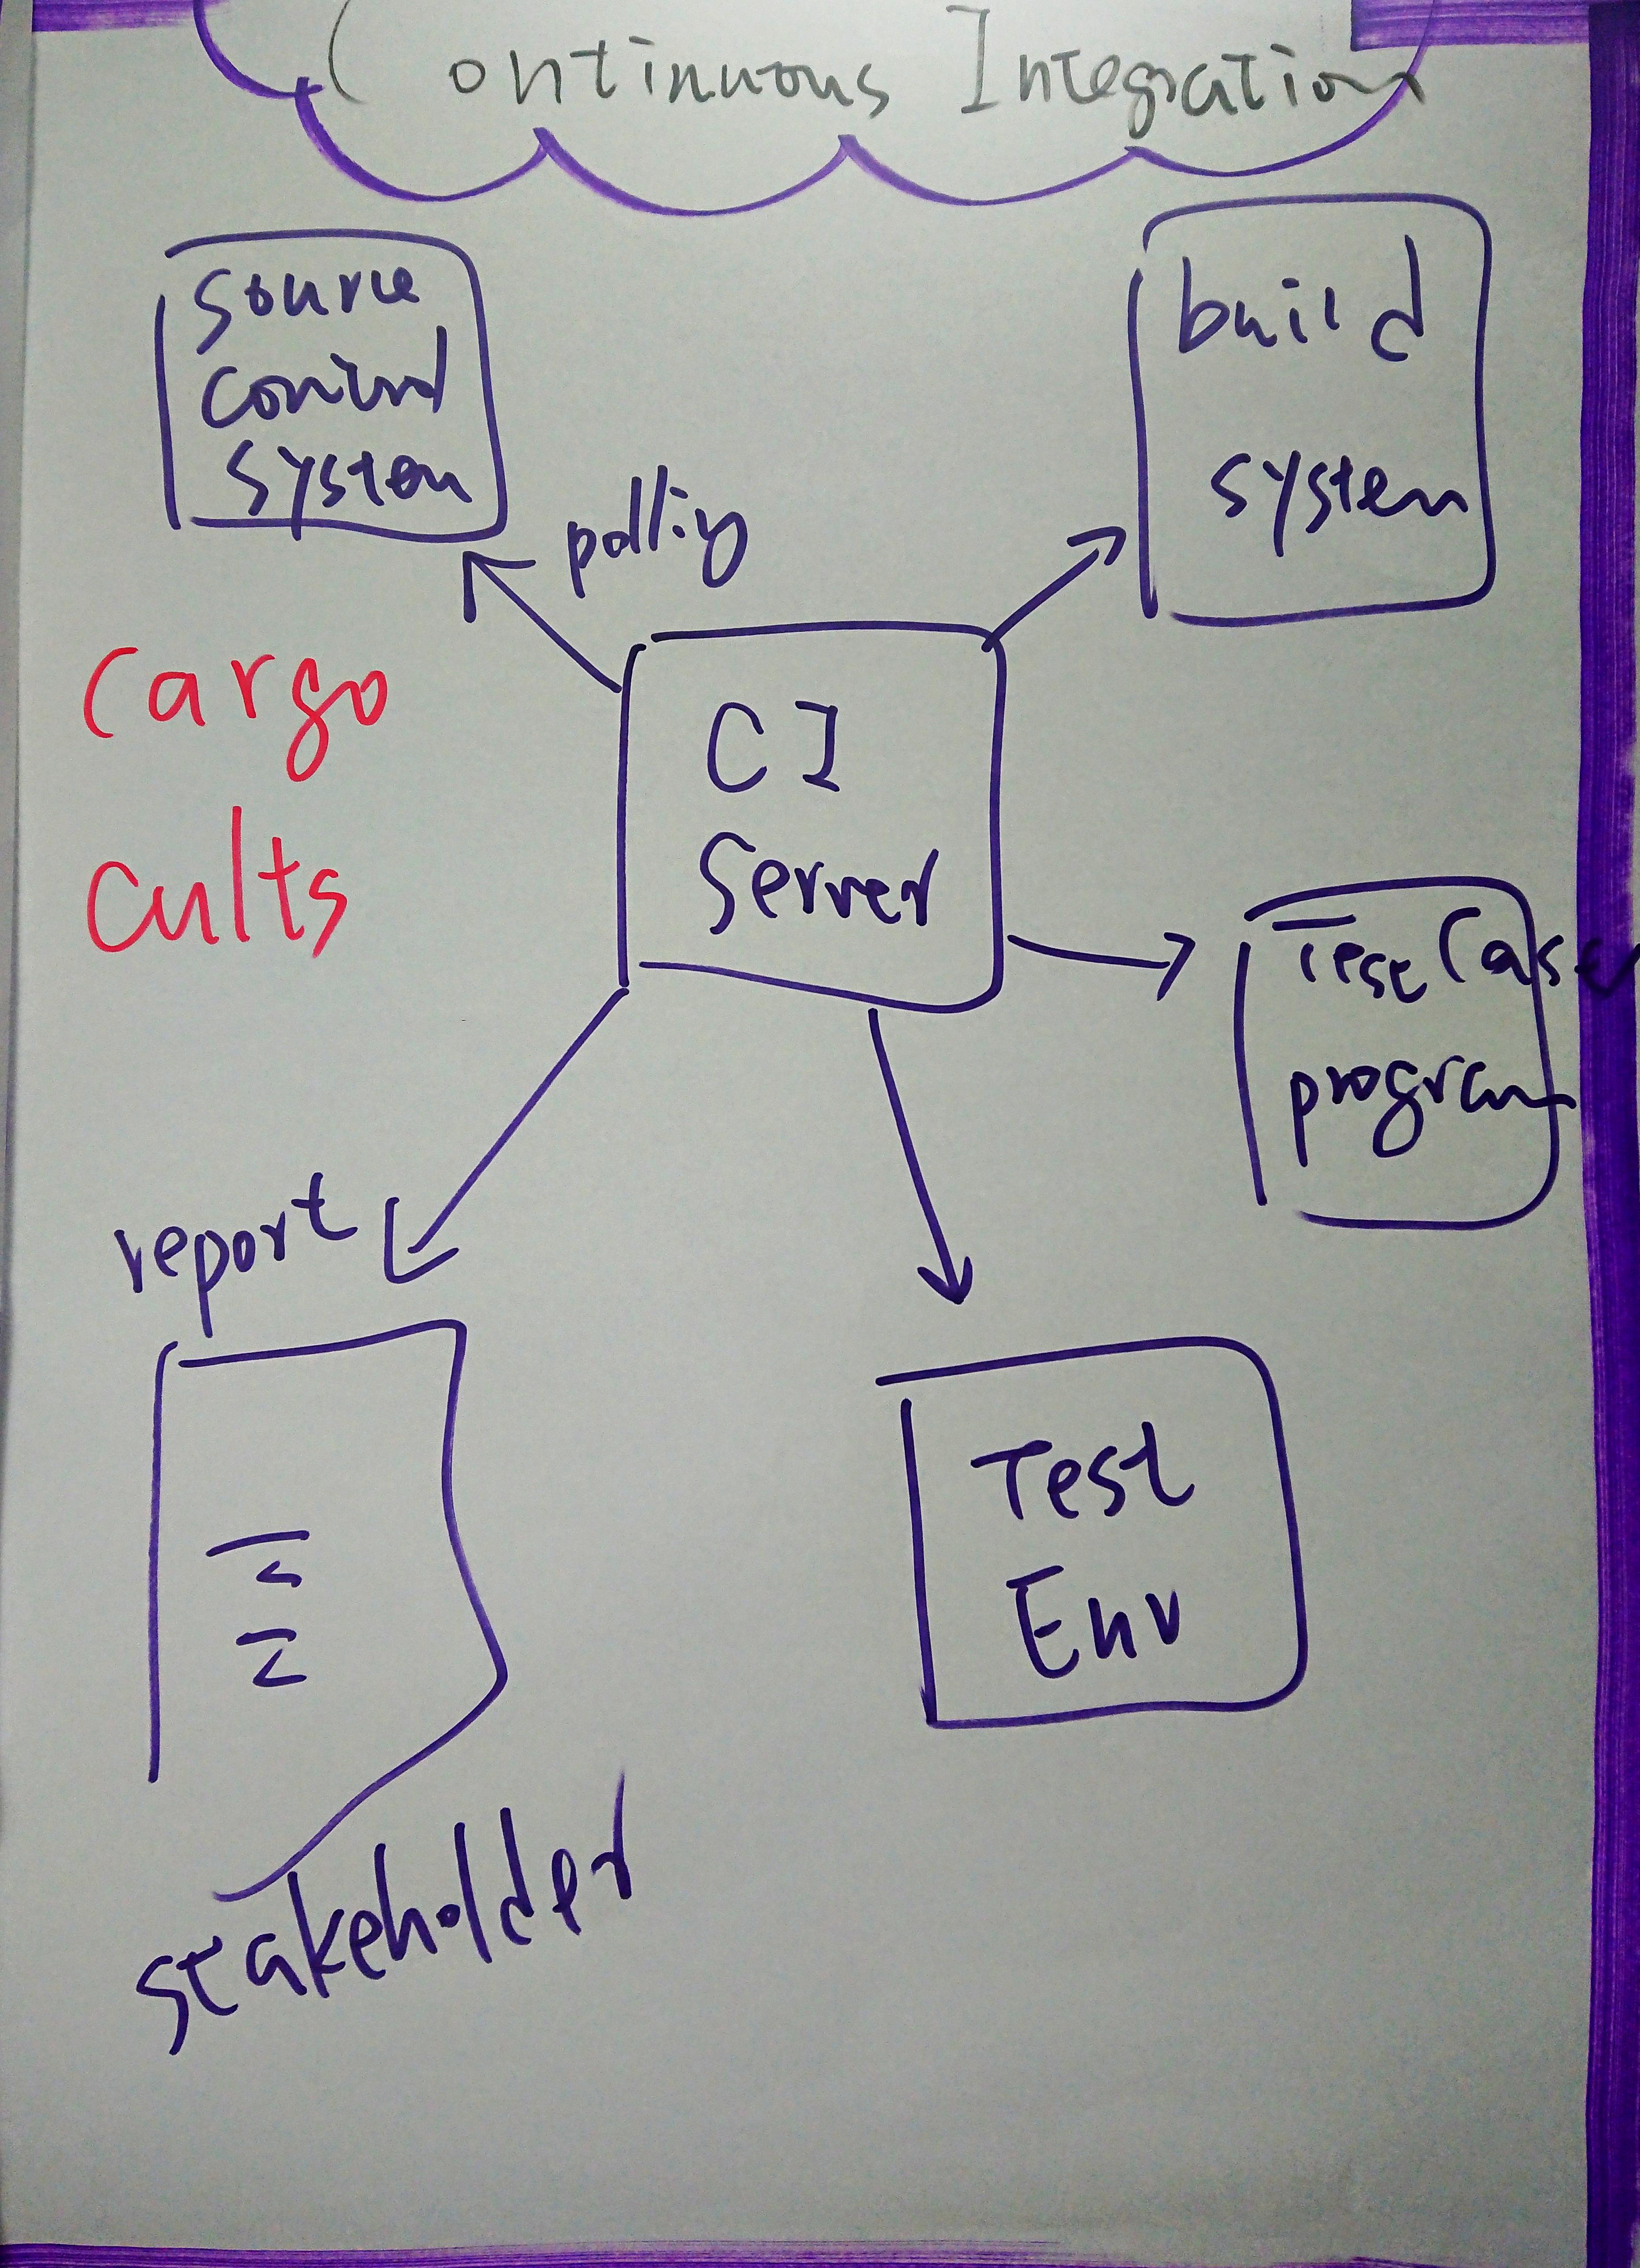 Continuous Integration
source
control
system
build
system
polling
cargo
cults
CI
Server
Test Cases
program
report
Test
Env
stakeholder